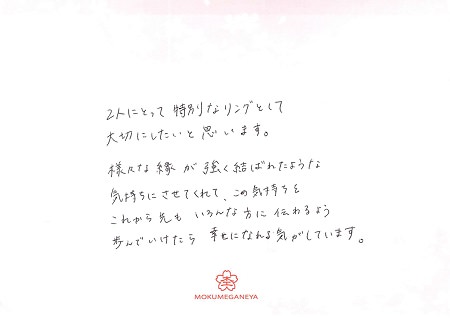 2人にとって特別なリングとして
大切にしたいと思います。
様々な縁が強く結ばれたような
気持ちにさせてくれて、この気持ちを
これから先もいろんな方に伝わるよう
歩んでいけたら幸せになれる気がしています。
MOKUMEGANEYA